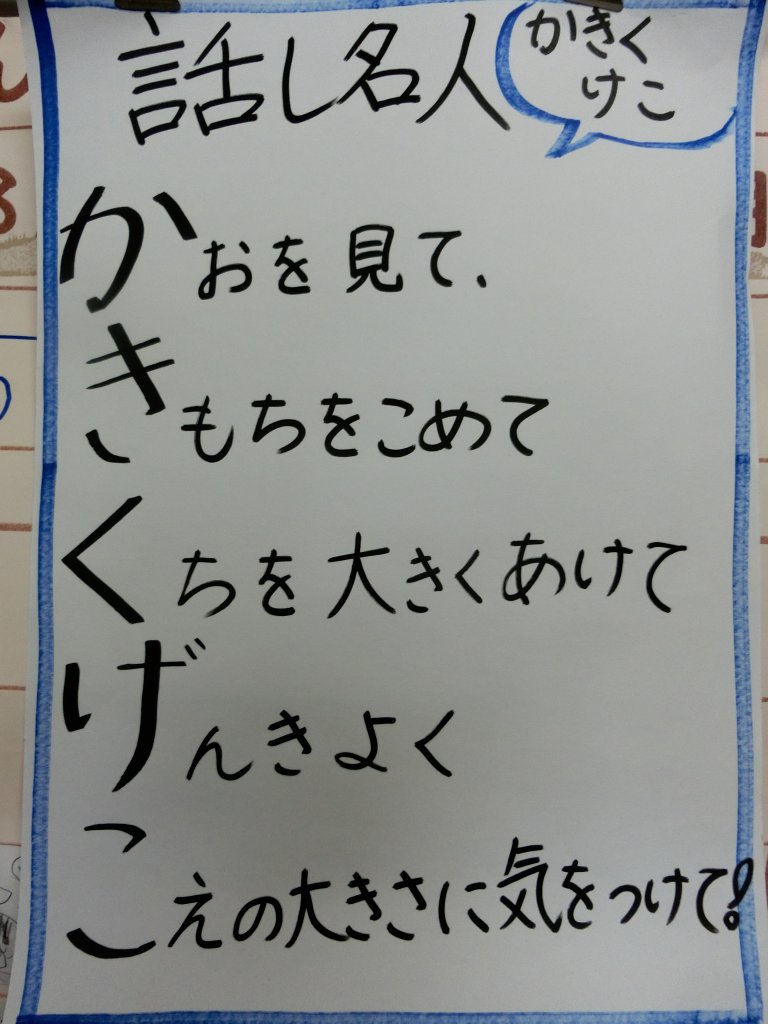 話し名人
かきく
けこ
かおを見て、
きもちをこめて
くちを大きくあけて
げんきよく
こえの大きさに気をつけて!